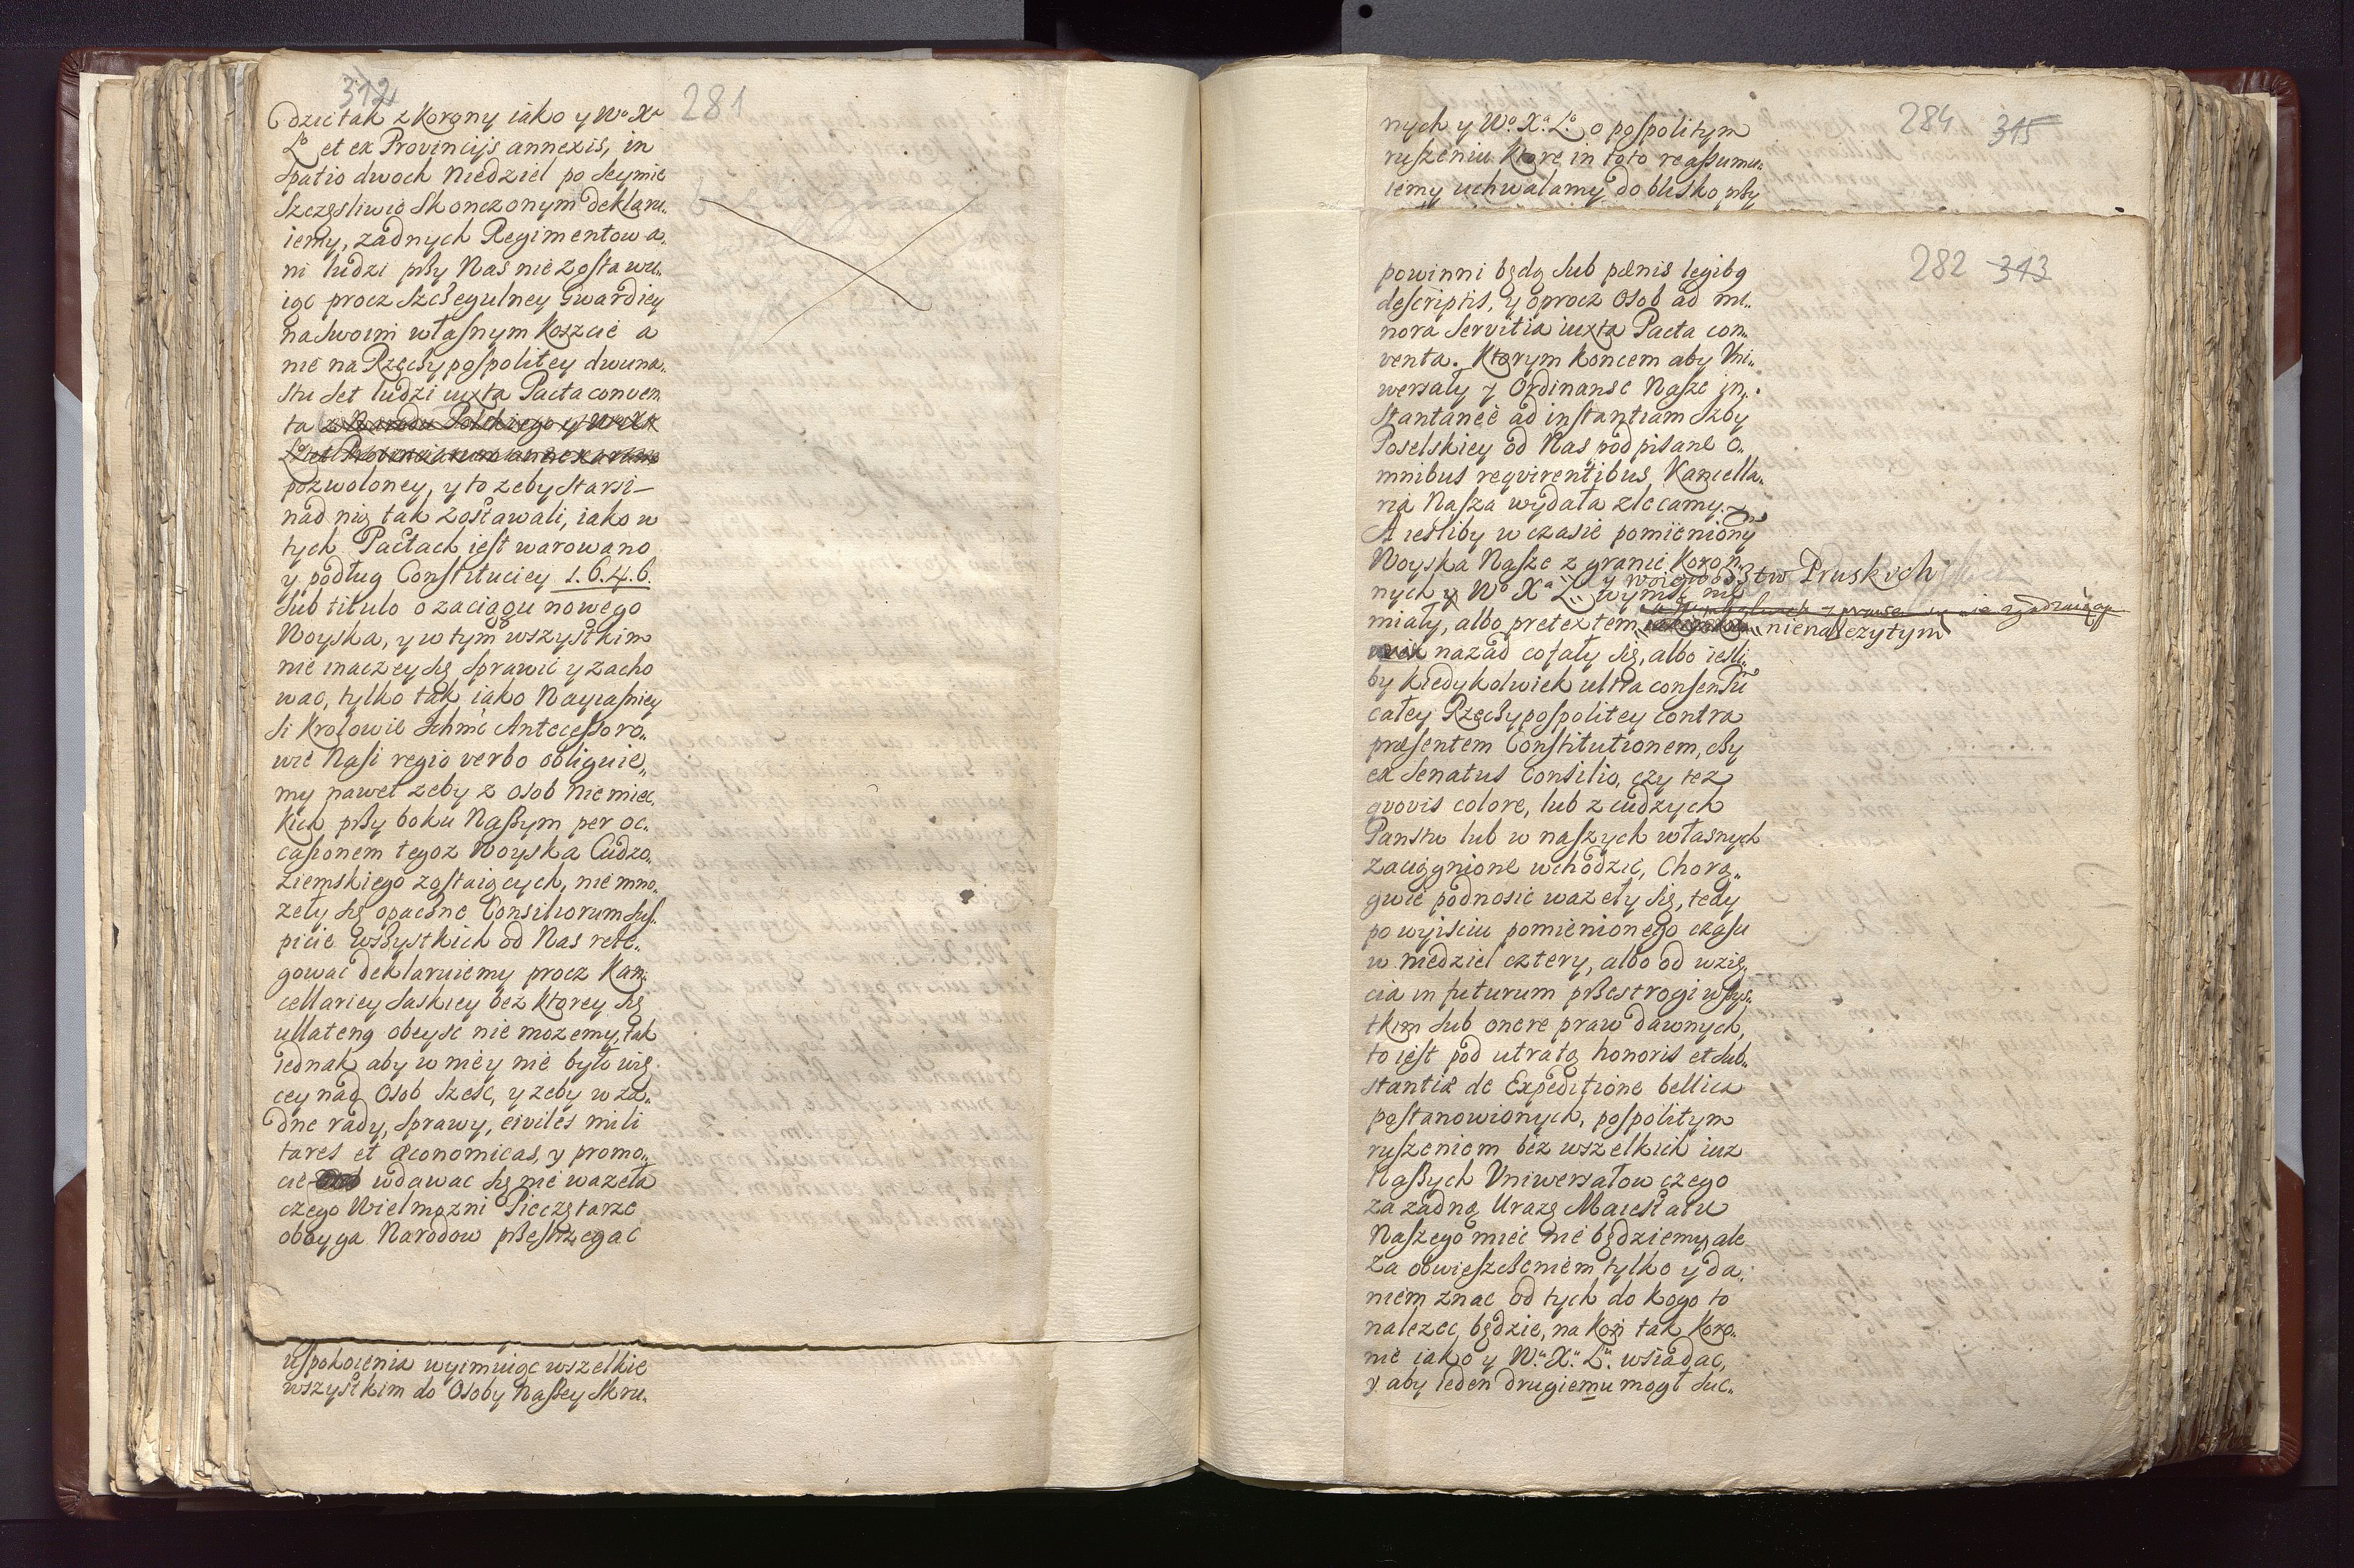 312 281
dzie tak z Korony iako y Wo Xa
Lo et ex Provincijs annexis, in
Spatio dwoch Niedziel po Seymie
Szczęsliwie Skonczonym deklaru„
iemy, zadnych Regimentow a„
ni ludzi pßy Nas nie zostawu„
iąc procz Szczegulney Gwardiey
na Swoim własnym Koszcie a
nie na Rzęcßypospolitey dwuna„
stu Set ludzi iuxta Pacta conven
ta
pozwoloney, y to zeby Starsi
nad nią tak zostawali, iako w
tych Pactach iest warowano
y podług Constituciey 1.6.4.6.
Sub titulo o zaciągu nowego
Woyska, y w tym wszystkim
nie inaczey Się Sprawic y zacho
wac, tylko tak iako Nayiasniey
Si Krolowie Ichmc Antecessoro„
wie Nasi regio verbo obliguie„
my nawet zeby z osob Niemiec„
kich pßy boku Naßym per oc„
casionem tegoz Woyska Cudzo„
ziemskiego zostaiących, nie mno„
zeły Się opaczne Consiliorum Sus„
picie wsßystkich od Nas rele„
gowac deklaruiemy procz Kan„
cellariey Saskiey bez ktorey Się
ullateng obeysc nie mozemy, tak
iednak aby w niey nie było wię
cey nad Osob Szesc, y zeby w za„
dne rady, Sprawy, civiles mili
tares et œconomicas, y promo„
cie wdawac Się nie wazeła
czego Wielmozni Pieczętarze
oboyga Narodow pßestrzegac
uspokoienia wyimuiąc wszelkie
wszystkim do Osoby Naßey Skru„
nych y Wo. Xa. Lo. o pospolitym 284 315
ruszeniu Ktore in toto reassumu„
iemy uchwalamy do blisko pßy
282 313
powinni będą Sub pœnis legibq
descriptis, y oprocz Osob ad mi„
nora Servitia iuxta Pacta con„
venta. Ktorym Koncem aby Vni„
wersały y Ordinanse Nasze in„
stantanee ad instantiam Izby
Poselskiey od Nas podpisane o„
mnibus requirentibus Kancella„
ria Nasza wydała zlecamy.
A iesliby w czasie pomieniony
Woyska Nasze z granic Koron„
nych y Wo Xa L. y woiewodstw Pruskich wyniść nie
miały, albo pretextem nienalezytym
nazad cofały Się, albo iesli„
by kiedykolwiek ultra consensu
całey Rzęcßypospolitey contra
præsentem Constitutionem, cßy
ex Senatus Consilio, czy tez
quovis colore, lub z cudzych
Panstw lub w naszych własnych
zaciągnione wchodzic, Chorą„
gwie podnosic wazeły Się, tedy
po wyisciu pomienionego czasu
w niedziel cztery, albo od wzię„
cia in futurum pßestrogi wßys„
tkim Sub onere praw dawnych,
to iest pod utratą honoris et Sub„
stantiæ de Expeditione bellica
postanowionych, pospolitym
ruszeniem bez wszelkich iuz
Naßych Vniwersałow czego
za zadną Urazę Maiestatu
Naszego miec nie będziemy, ale
za obwieszcßeniem tylko y da„
niem znac od tych do kogo to
nalezec będzie, na Koń tak Koro„
nie iako y Wu. Xu. Lu. wsiadac,
y aby ieden drugiemu mogł Suc„